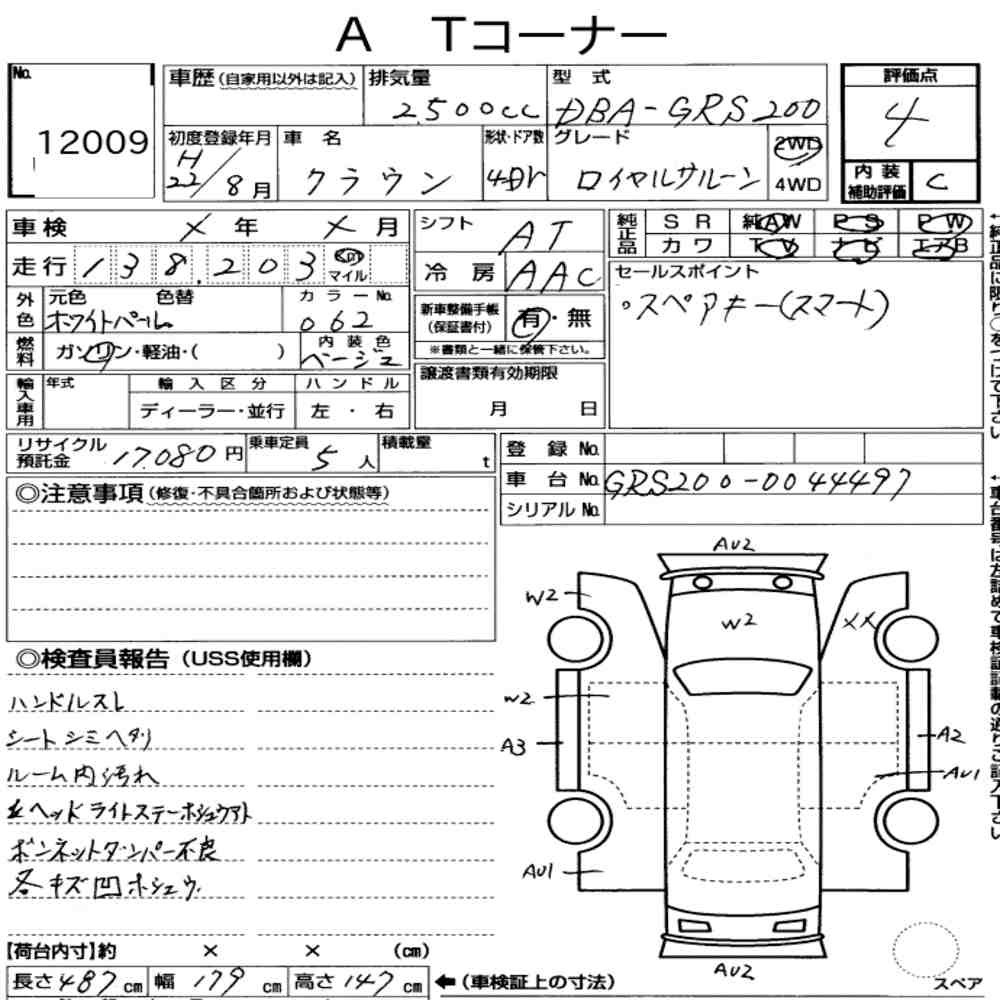 A Tコーナー
No. 12009
車歴(自家用以外は記入) 排気量 2500cc 型式 DBA-GRS200 評価点 4
初度登録年月 H22/8月 車名 クラウン 形状・ドア数 4Dr グレード ロイヤルサルーン 2WD 4WD 内装補助評価 C
車検 X年 X月 シフト AT 純正品 SR 純AW PS PW
カワ TV ナビ エアB
走行 138,203 Km マイル 冷房 AAC
セールスポイント
。スペアキー(スマート)
外色 元色 色替 ホワイトパール カラーNo. 062
新車整備手帳(保証書付) 有・無
※書類と一緒に保管下さい。
燃料 ガソリン・軽油・( ) 内装色 ベージュ
譲渡書類有効期限
月 日
輸入車用 年式 輸入区分 ハンドル
ディーラー・並行 左・右
リサイクル預託金 17.080円 乗車定員 5人 積載量 t
登録No.
車台No. GRS200-0044497
シリアルNo.
◎注意事項(修復・不具合箇所および状態等)
◎検査員報告(USS使用欄)
ハンドルスレ
シートシミヘタリ
ルーム内汚れ
ヘッドライトステーホシュウアト
ボンネットダンパー不良
各キズ凹ホシュウ.
AU2
W2
W2
XX
W2
A3
A2
AU1
AU1
AU2
スペア
【荷台内寸】約 × × (cm)
長さ487cm 幅179cm 高さ147cm ←(車検証上の寸法)
↑純正品に限り〇をつけて下さい